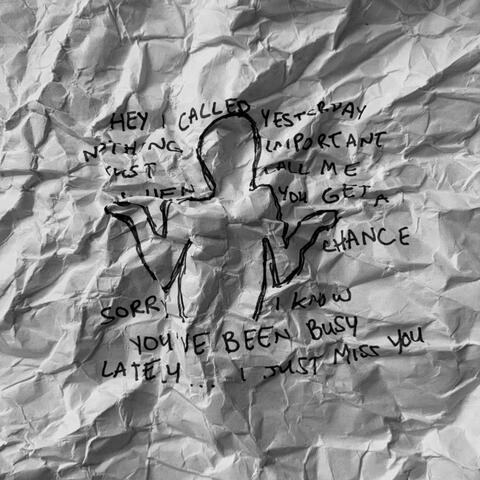 HEY I CALLED YESTERDAY
NOTHING IMPORTANT
JUST CALL ME
WHEN YOU GET A
CHANCE
SORRY I KNOW
YOU'VE BEEN BUSY
LATELY... I JUST MISS YOU